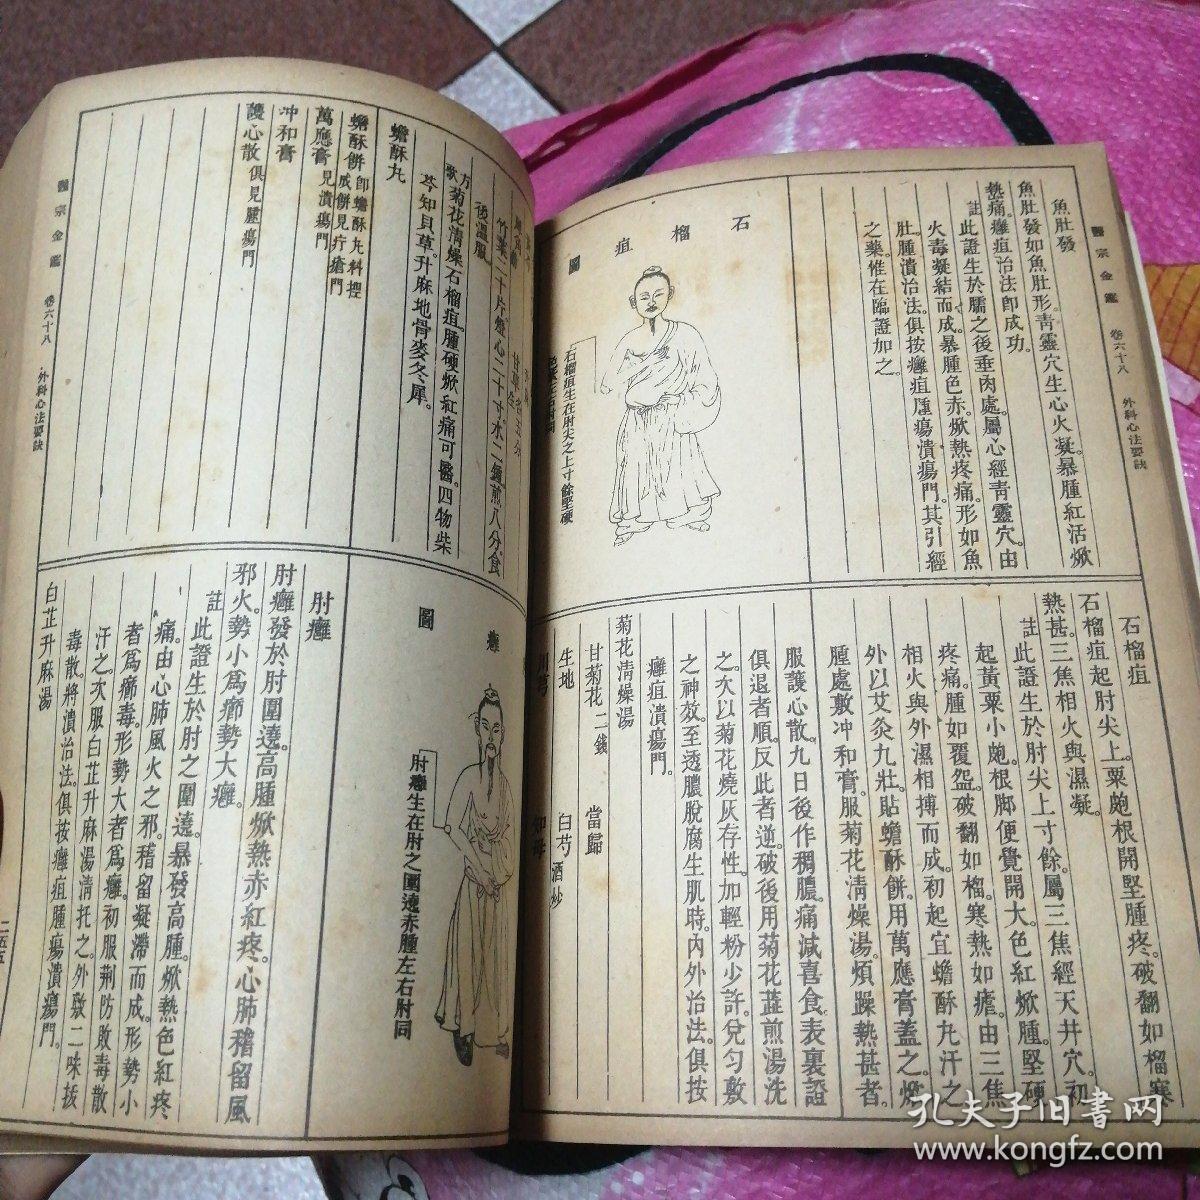 醫宗金鑑 卷六十八 外科心法要訣
魚肚發
魚肚發如魚肚形。青靈穴生心火凝。暴腫紅活焮
熱痛。癰疽治法卽成功。
註此證生於臑之後垂肉處。屬心經青靈穴。由
火毒凝結而成。暴腫色赤。焮熱疼痛。形如魚
肚。腫潰治法。俱按癰疽腫瘍潰瘍門。其引經
之藥。惟在臨證加之。
石榴疽圖
石榴疽生在肘尖之上寸餘堅硬
石榴疽
石榴疽起肘尖上。粟皰根開堅腫疼。破翻如榴寒
熱甚。三焦相火與濕凝。
註此證生於肘尖上寸餘。屬三焦經天井穴。初
起黃粟小皰。根脚便覺開大。色紅焮腫。堅硬
疼痛。腫如覆盌。破翻如榴。寒熱如瘧。由三焦
相火與外濕相搏而成。初起宜蟾酥丸汗之
外以艾灸九壯。貼蟾酥餅。用萬應膏蓋之。焮
腫處敷冲和膏。服菊花清燥湯。煩躁熱甚者。
服護心散。九日後作稠膿。痛減喜食。表裏證
俱退者順。反此者逆。破後用菊花蕋煎湯洗
之。次以菊花燒灰存性。加輕粉少許。兌勻敷
之神效。至透膿脫腐生肌時。內外治法。俱按
癰疽潰瘍門。
菊花清燥湯
甘菊花二錢 當歸
生地 白芍酒炒
川芎 知母
竹葉二十片。燈心二十寸。水二鍾。煎八分。食
後溫服。
方歌菊花清燥石榴疽。腫硬焮紅痛可醫。四物柴
芩知貝草。升麻地骨麥冬犀。
蟾酥丸
蟾酥餅卽蟾酥丸料揑成餅見疔瘡門
萬應膏見潰瘍門
冲和膏
護心散俱見腫瘍門
醫宗金鑑 卷六十八 外科心法要訣
癰圖
肘癰生在肘之圍遶赤腫左右肘同
肘癰
肘癰發於肘圍遶。高腫焮熱赤紅疼。心肺稽留風
邪火。勢小爲癤勢大癰。
註此證生於肘之圍遶。暴發高腫。焮熱色紅疼
痛。由心肺風火之邪。稽留凝滯而成。形勢小
者爲癤毒。形勢大者爲癰。初服荆防敗毒散
汗之。次服白芷升麻湯清托之。外敷二味拔
毒散。將潰治法。俱按癰疽腫瘍潰瘍門。
白芷升麻湯
二五五
孔夫子旧書网
www.kongfz.com